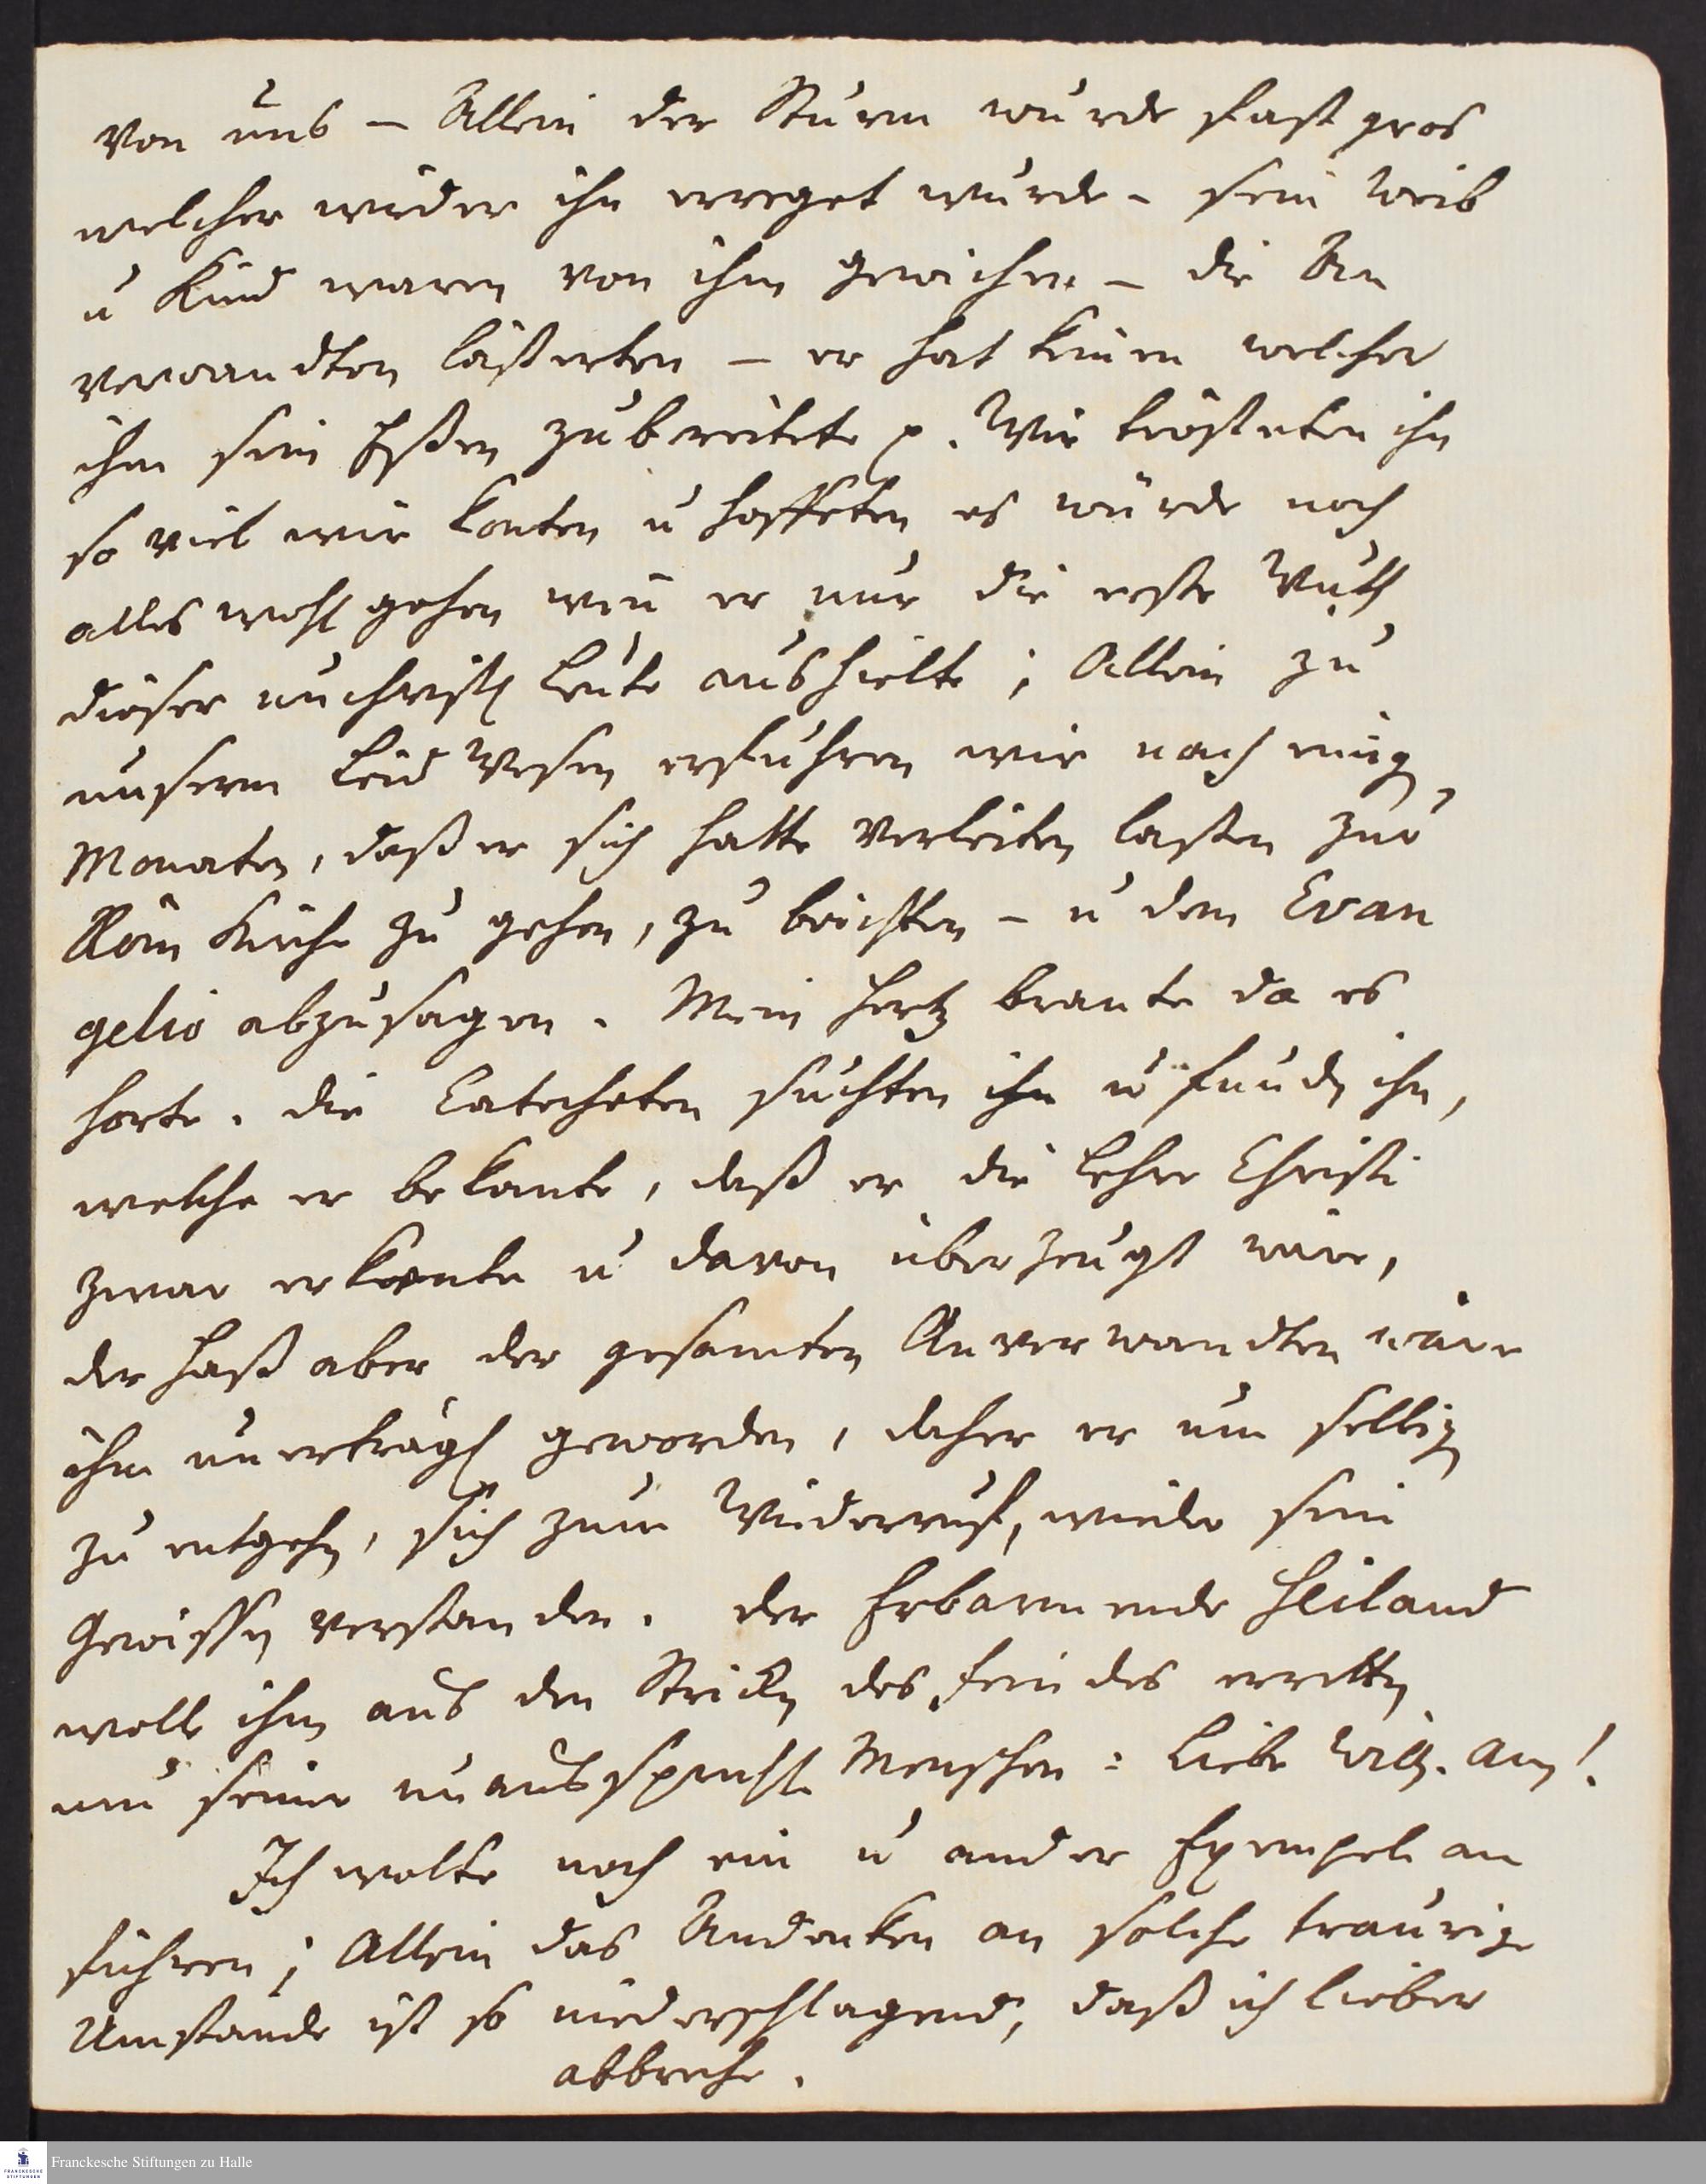 von uns – Allein der Sturm wurde fast gros
welcher wieder ihn erreget wurde – sein Weib
u Kind waren von ihm gewichen – die An
verwandten lästerten – er hat keinen welcher
ihm sein Eßen zubereitete p. Wir trösteten ihn
so viel wir konten u hoffeten es würde noch
alles wohl gehen wen er nur die erste Wuth
dieser unchristl Leute aushielte; Allein zu
unserm Leid Wesen erfuhren wir nach einig
Monaten, daß er sich hatte verleiten laßen zur
Röm Kirche zu gehen, zu beichten – u dem Evan
gelio abzusagen. Mein Hertz brante da es
horte. die Catecheten suchten ihn u funden ihn,
welche er bekante, daß er die Lehre Christi
zwar erkante u davon überzeugt wäre,
der Haß aber der gesamten Anverwandten wäre
ihm unerträgl geworden, daher er um selbig
zu entgehen, sich zum Wiederruf, wieder sein
Gewissen verstanden. der Erbarmende Heiland
wolle ihn aus den Stricken des Feindes erretten
um seiner unaussprechl Menschen: Liebe willen. Am!
Ich wolte noch ein u ander Exempel an
führen; Allein das Andenken an solche traurige
Umstände ist so niederschlagend, daß ich lieber
abbreche.
Franckesche Stiftungen zu Halle
FRANCKESCHE
STIFTUNGEN